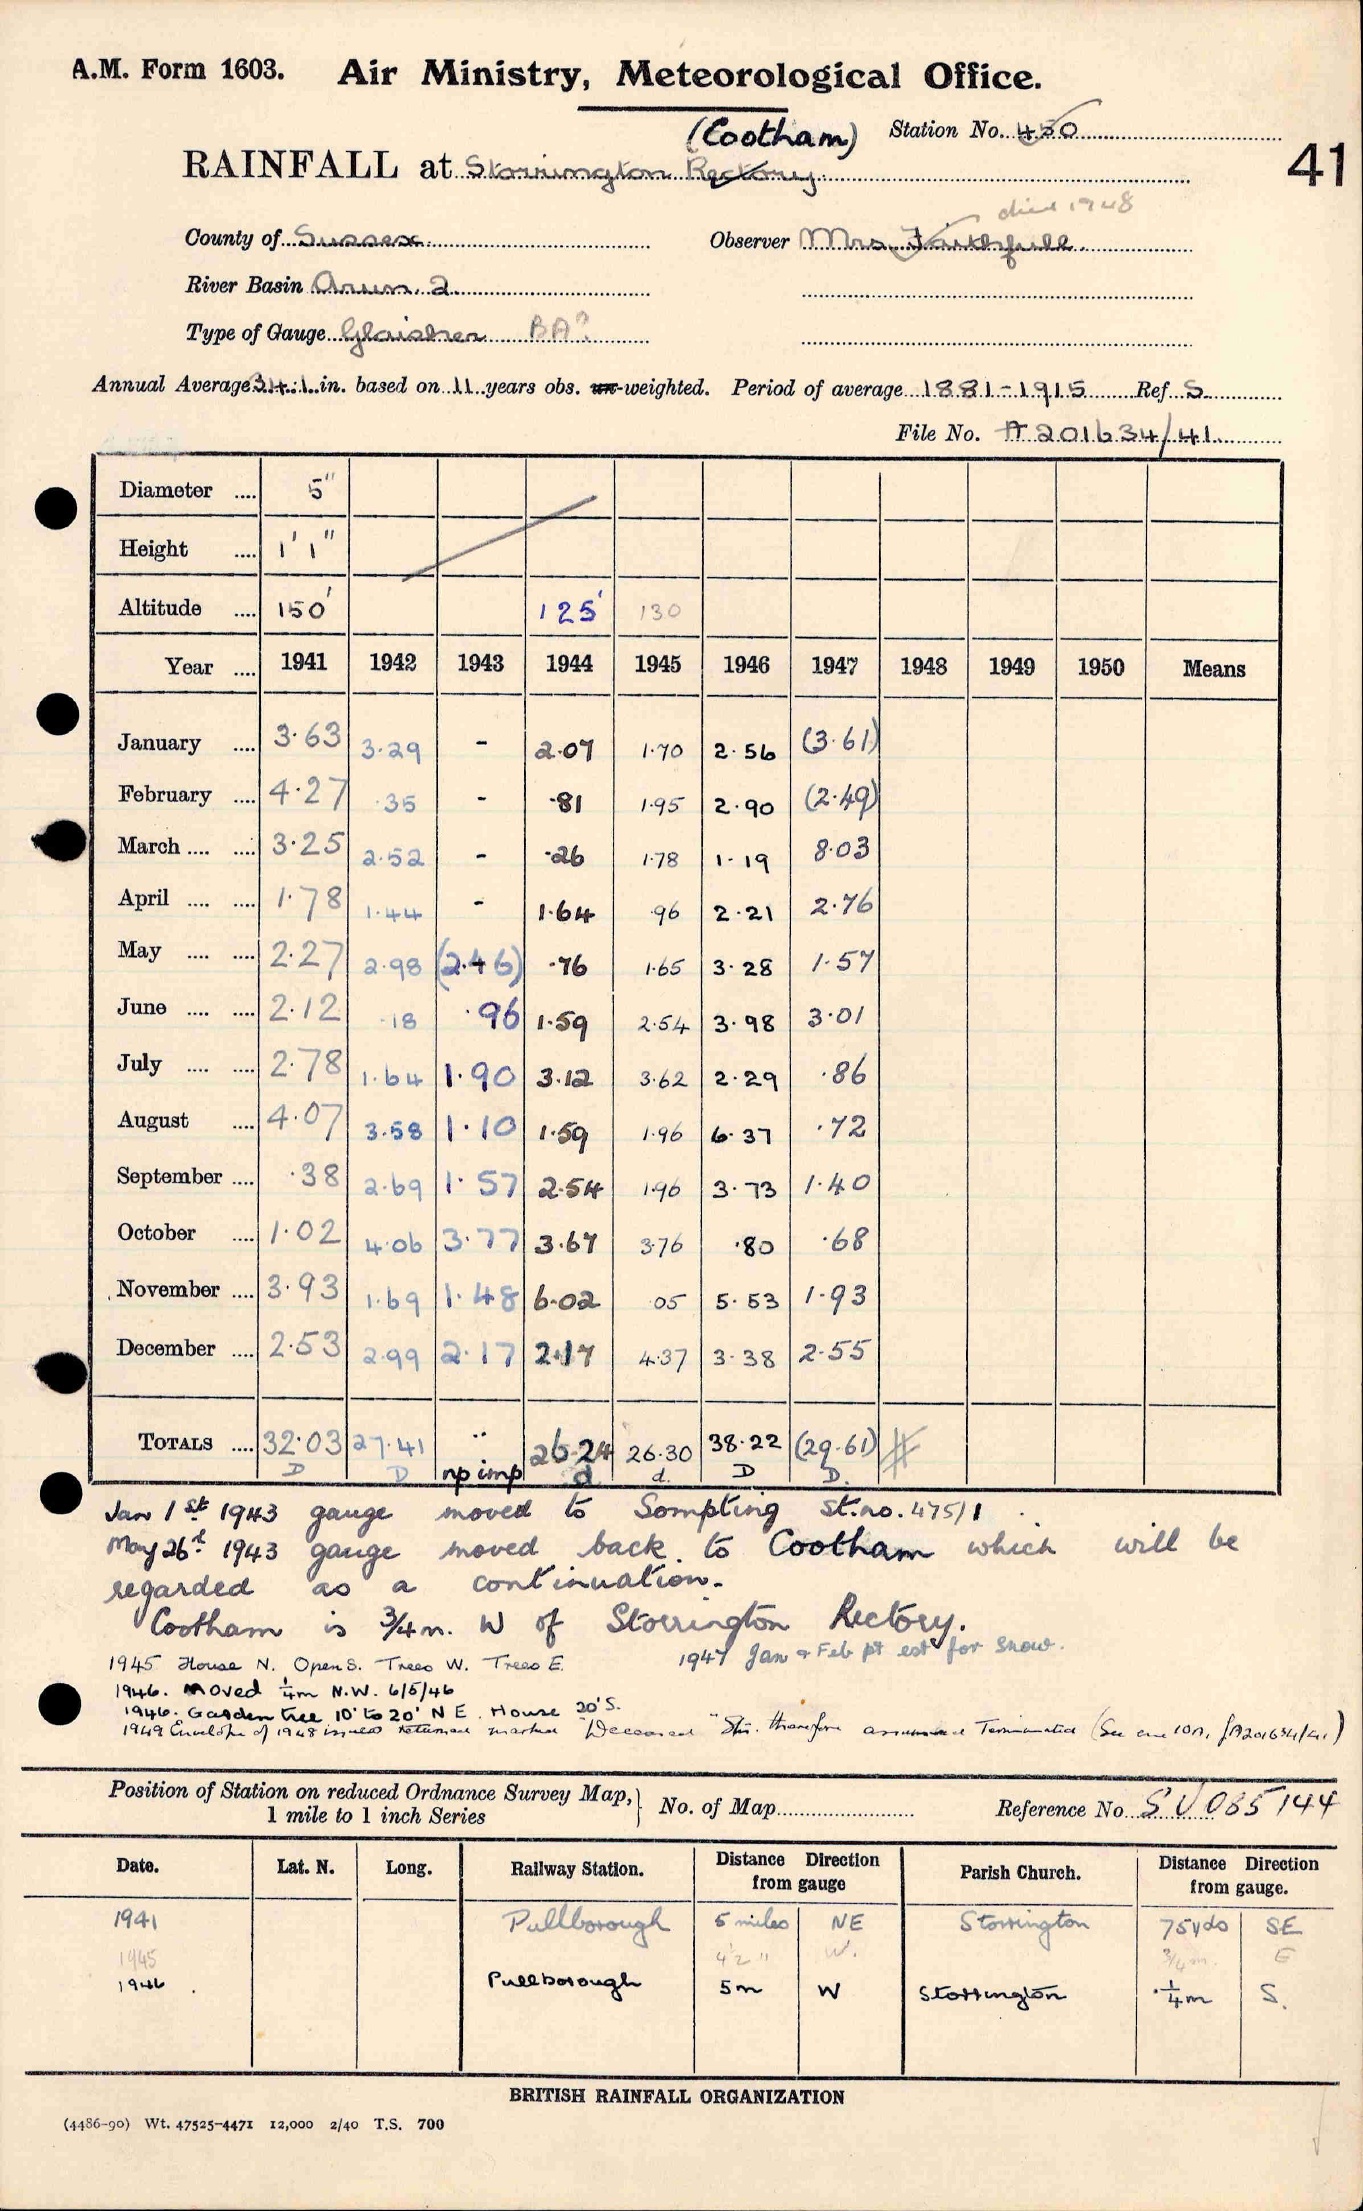 A.M. Form 1603. Air Ministry, Meteorological Office.
(Cootham) Station No. 450
RAINFALL at Storrington Rectory
41
died 1948
County of Sussex Observer Mrs. Faithfull.
River Basin Arun. 2
Type of Gauge Glaisher BA?
Annual Average 34.1 in. based on 11 years obs. un-weighted. Period of average 1881-1915 Ref S.
File No. A201634/41
Diameter .... 5"
Height .... 1' 1"
Altitude .... 150' 125' 130
Year .... 1941 1942 1943 1944 1945 1946 1947 1948 1949 1950 Means
January .... 3.63 3.29 - 2.07 1.70 2.56 (3.61)
February .... 4.27 .35 - .81 1.95 2.90 (2.49)
March .... .... 3.25 2.52 - .26 1.78 1.19 8.03
April .... .... 1.78 1.44 - 1.64 .96 2.21 2.76
May .... .... 2.27 2.98 (2.46) .76 1.65 3.28 1.57
June .... .... 2.12 .18 .96 1.59 2.54 3.98 3.01
July .... .... 2.78 1.64 1.90 3.12 3.62 2.29 .86
August .... 4.07 3.58 1.10 1.59 1.96 6.37 .72
September .... .38 2.69 1.57 2.54 1.96 3.73 1.40
October .... 1.02 4.06 3.77 3.67 3.76 .80 .68
November .... 3.93 1.69 1.48 6.02 .05 5.53 1.93
December .... 2.53 2.99 2.17 2.17 4.37 3.38 2.55
TOTALS .... 32.03 27.41 .. 26.24 26.30 38.22 (29.61) #
D D np imp d d. D D.
Jan 1st 1943 gauge moved to Sompting St.no. 475/1
May 26th 1943 gauge moved back to Cootham which will be
regarded as a continuation.
Cootham is 3/4 m. W of Storrington Rectory.
1947 Jan & Feb pt est for snow.
1945 House N. Open S. Trees W. Trees E.
1946. Moved 1/4m N.W. 6/5/46
1946. Garden tree 10' to 20' NE. House 20' S.
1949 Envelope of 1948 issue returned marked "Deceased" Stn. therefore assumed Terminated (See enc 10A, fA201634/41)
Position of Station on reduced Ordnance Survey Map, } No. of Map Reference No. SU 085144
1 mile to 1 inch Series
Date. Lat. N. Long. Railway Station. Distance Direction from gauge Parish Church. Distance Direction from gauge.
1941 Pullborough 5 miles NE Storrington 75yds SE
1945 4½ " W. 3/4m. E
1946 Pullborough 5m W Storrington 1/4m S.
BRITISH RAINFALL ORGANIZATION
(4486-90) Wt. 47525-4471 12,000 2/40 T.S. 700